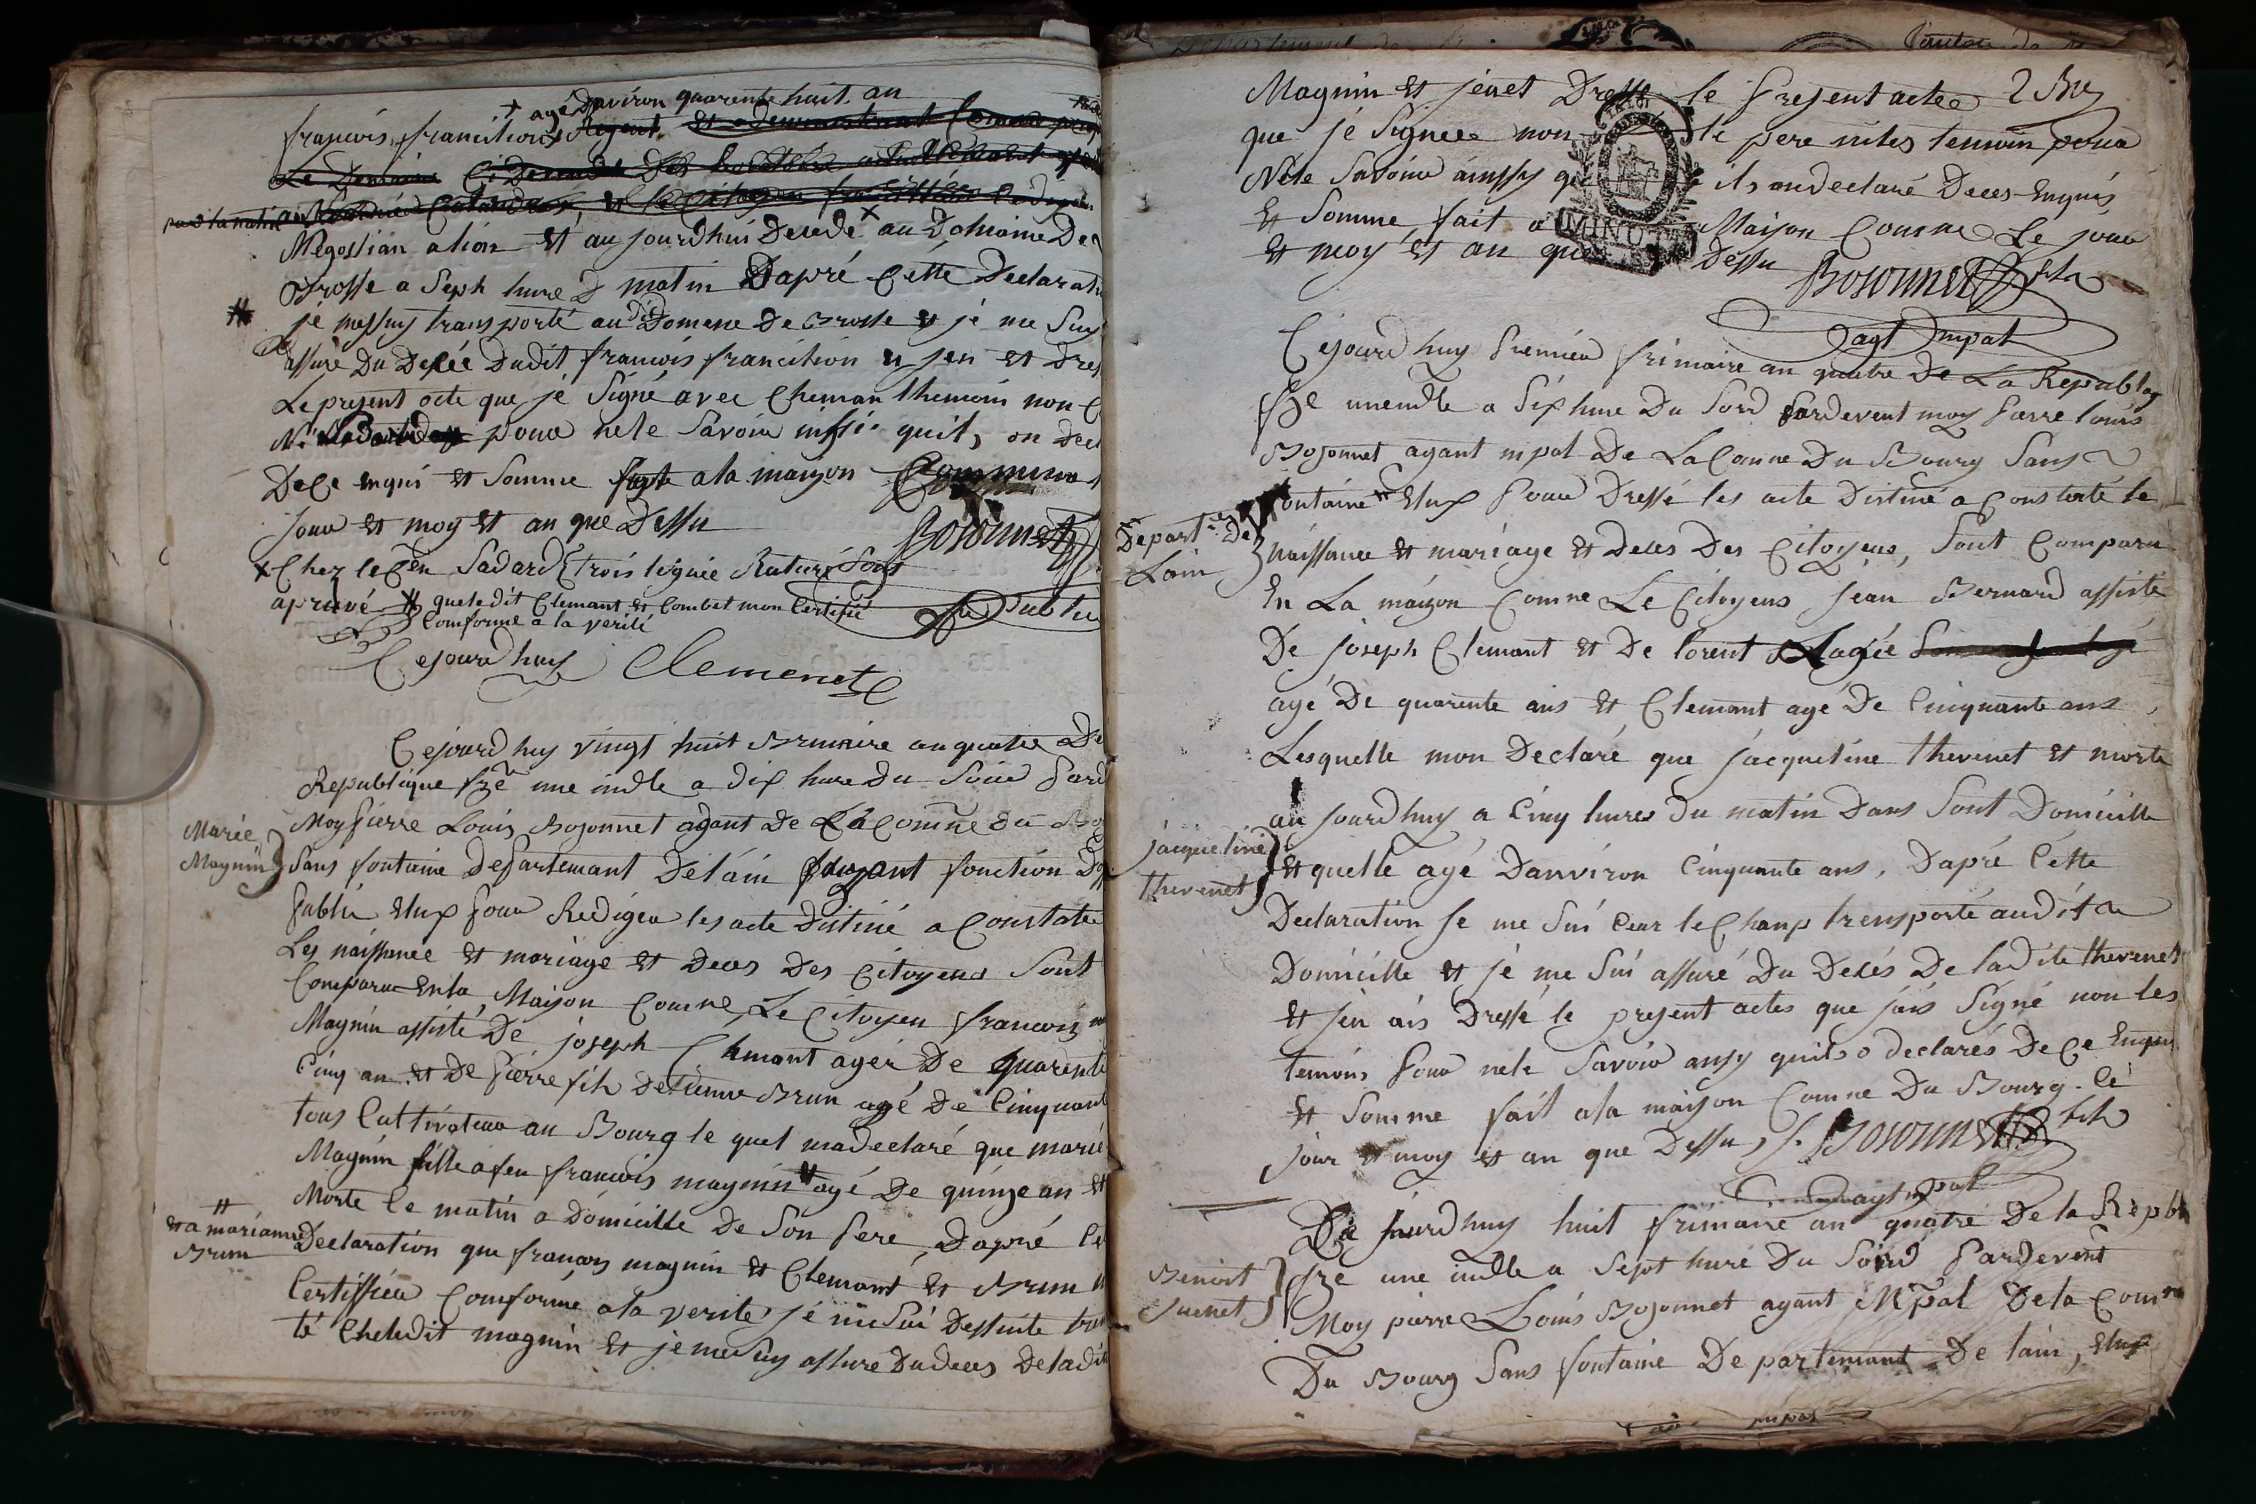 + agé Danviron quarente huit an
francois francition Regent
Mégossian a lion Et aujourdhui Decedé x au Domaine De
Brosse a Seph hure D matin Dapré Cette Declarati
je messuy transporté audit Domene De Brosse Et je me Suy
assuré Du Decée Dudit francois francition Et jen Et Dres
Le present acte que je Signé avec Cleman themoin non
Ni pour nele Savoir quil, on Decl
De Ce enqui Et Somme fayt ala maizon Commune
jour Et moy Et an que Dessu
Bosonnet
x Chez le Cen Sadard trois lignie Raturé Sons
aprové # queledit Clemant Et Combet mon Certifié
Comforme a la verité
Cejourdhuy Clemenet
Cejourdhuy vingt huit Brimaire an quatre De
Republique fze une indle a dix hure du Soire Pard
Marie
Magnin
Moy Pierre Louis Bosonnet agant de La Comne du Bo
Sans fontaine Departemant De lain fayzant fonction Doff
Publi Elux Pour Redigea les acte Distiné a Constate
Les naissance Et mariage Et Deces Des Citoyens Sont
Comparu En la Maison Comne, Le Citoyen francois
Magnin assisté De joseph Clemant ager De quarente
Cinq an Et De Pierre fils Detienne Brun agé De Cinquant
tous Cultivateur au Bourg le quel madeclaré que marie
Magnin fille a feu francois magnin # agé De quinze an Et
Morte le matin a Domicille De Son Pere, Dapré le
# Et a marianne
Brun
Declaration que francois magnin Et Clemant Et Brun
Certiffiéa Comforme a la verité, je me Sui Dessuite tra
té Cheledit magnin Et je me Suy assure Du deces De ladit
Magnin Et jenet Dressé le Present acte
que je Signee non le pere nites temoin pour
Nele Savoire ainssy que ils on declaré Deces Enquis
Et Somme, fait a Maison Comne Le jour
MINUTE
Et moy Et an que Dessu Bosonnet fils
agt mpal
Cejourdhuy Premier frimaire an quatre De La Republiq
fze uneindle a Six hure Du Soir Pardevent moy Pierre louis
Bosonnet agant mpal De La Comne Du Bourg Sans
fontaine Elux Pour Dressé les acte Distiné a Constaté le
Departe De
Lain
Naissance Et mariage Et Deces Des Citoyens, Sont Comparu
En La maizon Comne Le Citoyens jean Bernard assisté
De joseph Clemant Et De lorent Lagie
agé De quarente ans Et Clemant agé De Cinquante ans
Lesquelle mon Declaré que jacqueline thevenet Et morte
au jourdhuy a Cinq hures Du matin Dans Sont Domicille
jacqueline
thevenet
Et quelle agé Danviron Cinquante ans, Dapré Cétte
Declaration je me Sui Ceur le Chanp trensporté audit
Domicille Et je me Sui assuré Du Decés De ladite thevenet
Et jen ais Dressé le present actes que jais Signé non les
temoins Pour nele Savoir ansy quils o declarés De Ce Enquis
Et Somme fait ala maison Comne Du Bourg. Le
jour Et moy Et an que Dessu Bosonnet fils
agt mpal
Ce jourdhuy huit frimaire an quatre De la Repbl
Benoit
Juenet
fze une indle a Sept hure Du Soird Pardevent
Moy pierre Louis Bosonnet agant Mpal De la Comne
Du Bourg Sans fontaine Departemant De lain, Elux